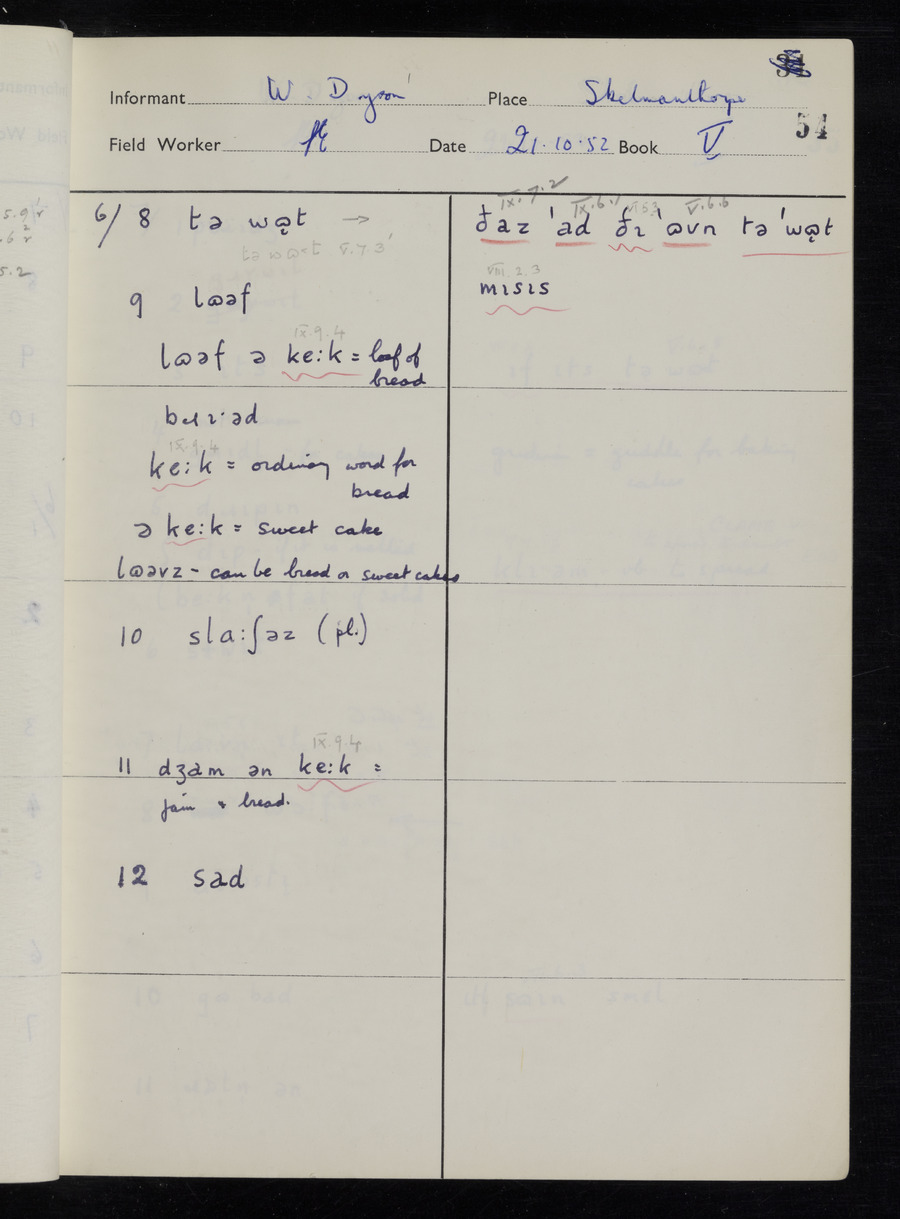 54
Informant W. Dyson Place Skelmanthorpe
Field Worker Date 21.10.52 Book V
6/ 8 tə wɷ̜t →
tə wɷt V.7.3
9 lɷəf
IX.9.4
lɷəf ə ke:k = loaf of
bread
ke:k = ordinary word for
IX.9.4
bread
ə ke:k = sweet cake
lɷəvz - can be bread or sweet cakes
10 sla:ʃəz (pl.)
IX.9.4
11 dʒam ən ke:k =
jam & bread.
12 sad
IX.7.2 IX.6.1 V.6.6
ðaz 'ad ðɪ 'ɷvn tə 'wɷ̜t
VIII.2.3
mɪsɪs
5.2